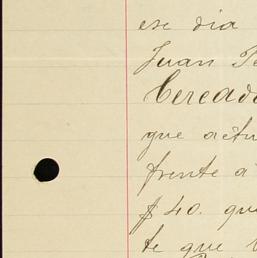 ese dia
Juan
Cercado
que actu
frente á
$40. que
te que